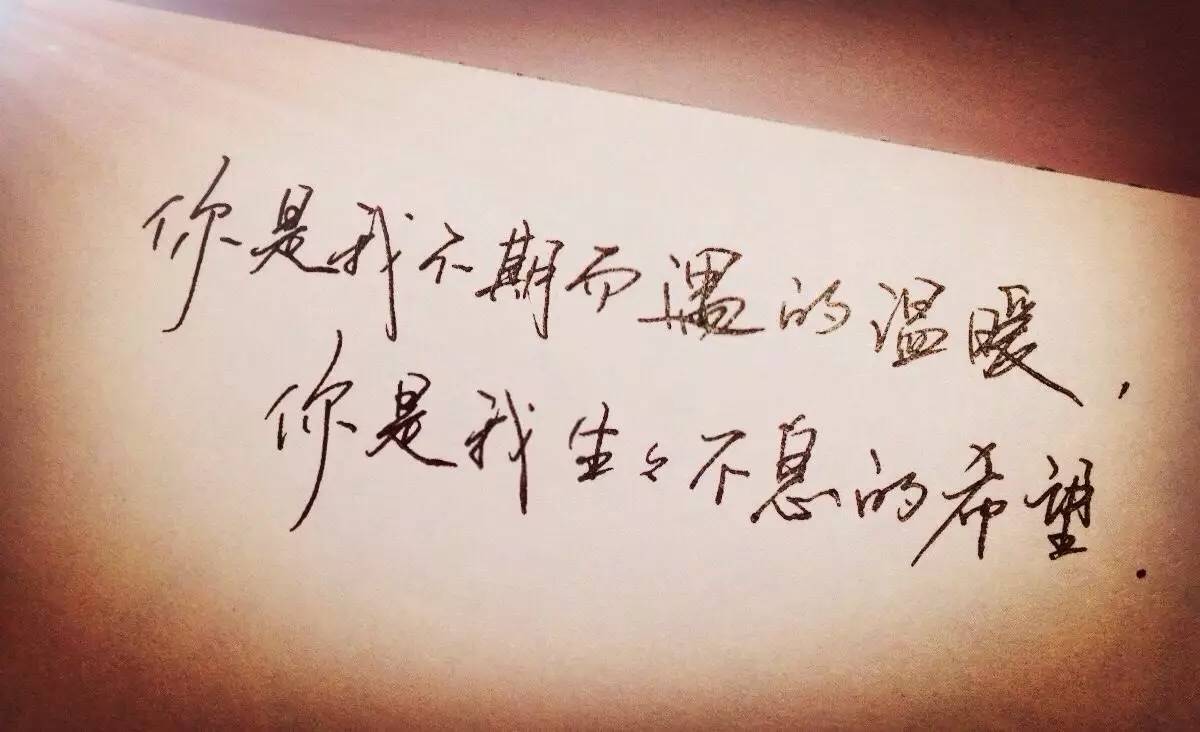 你是我不期而遇的温暖，
你是我生々不息的希望.